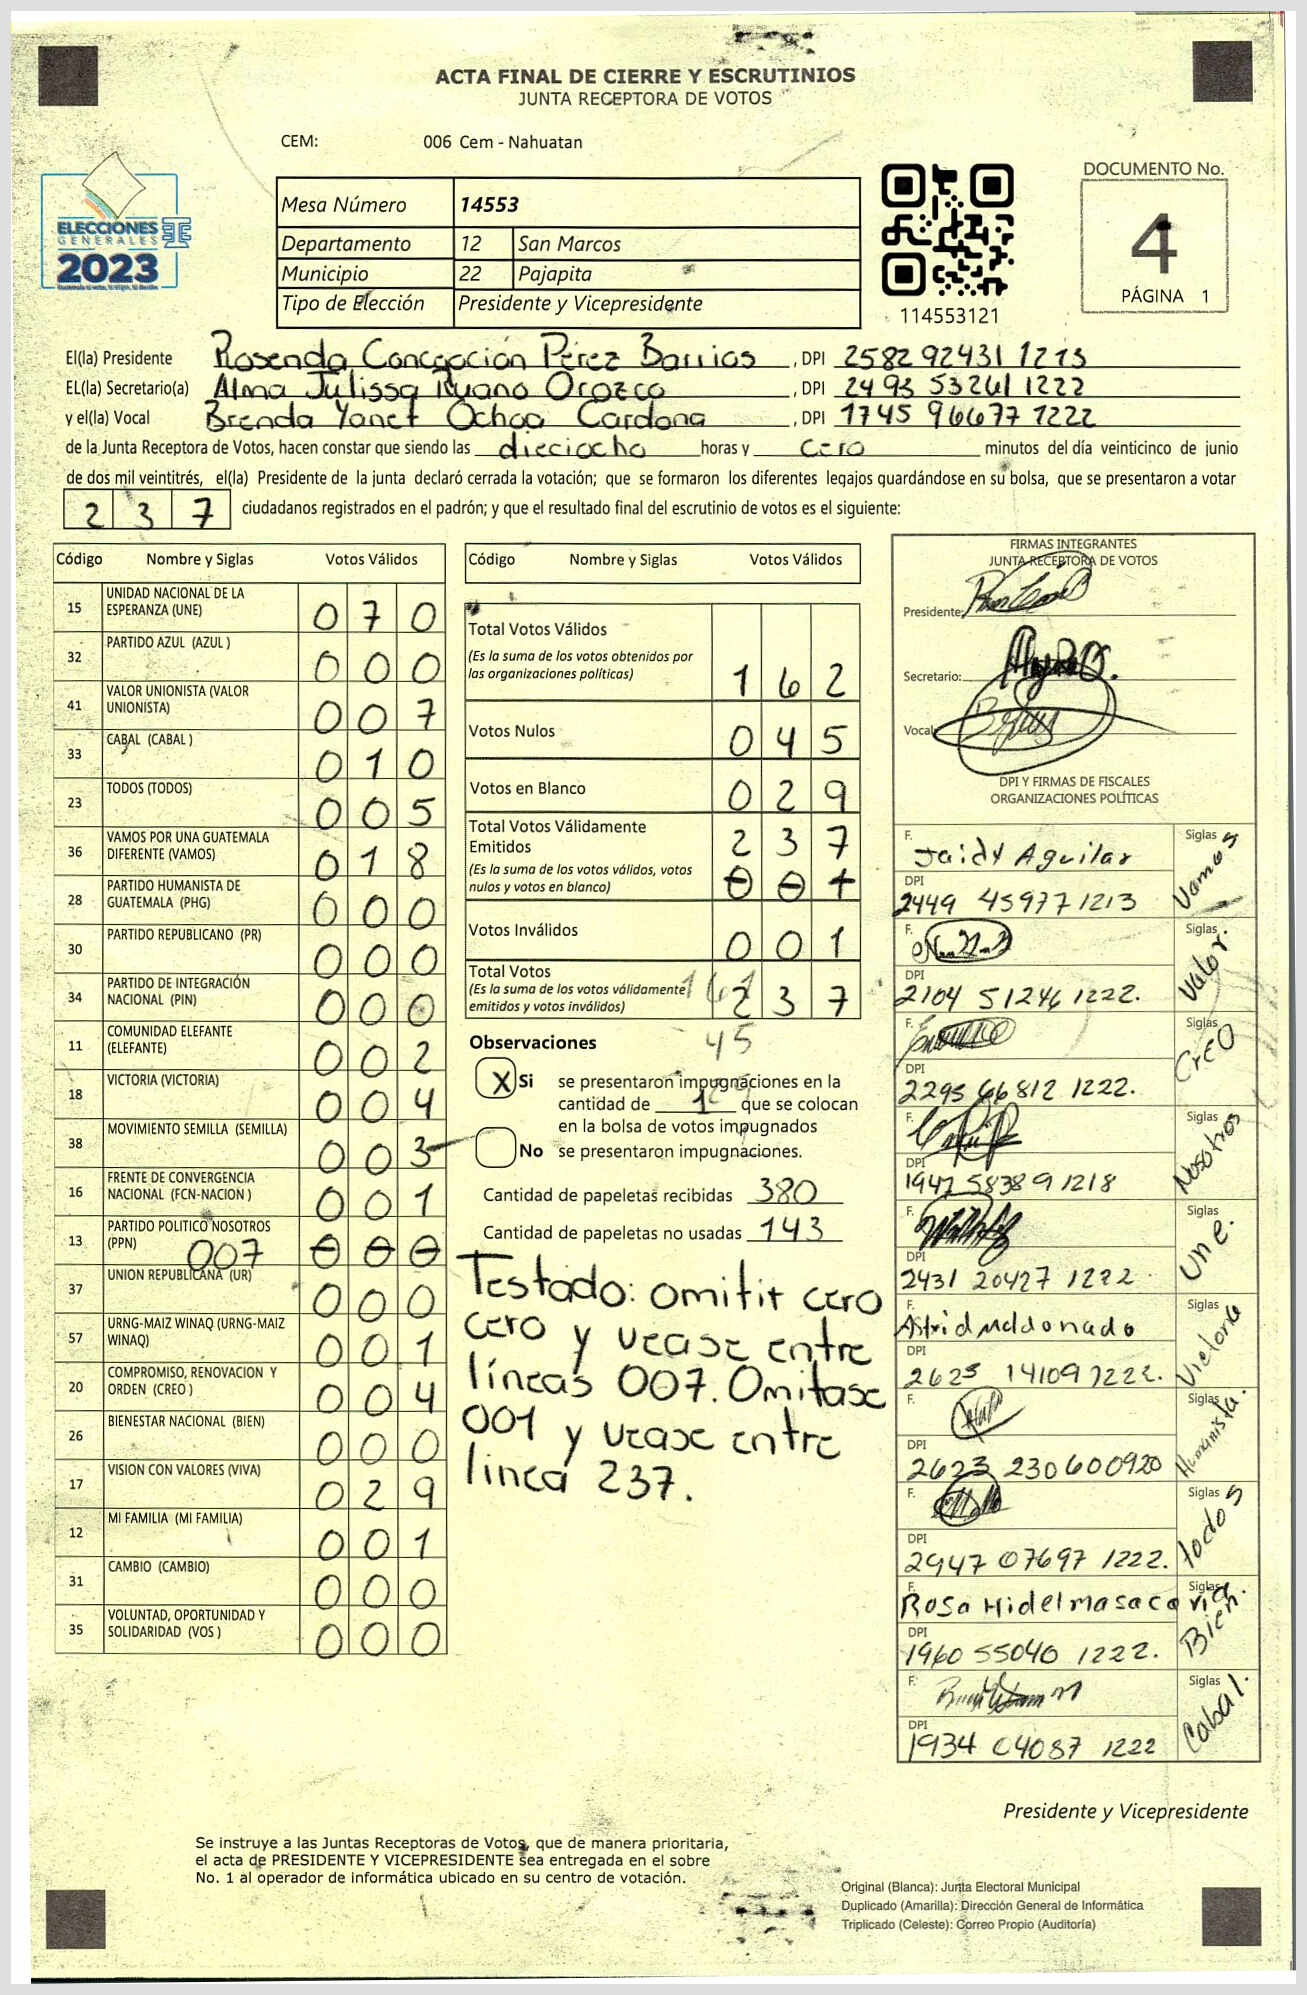 ACTA FINAL DE CIERRE Y ESCRUTINIOS
JUNTA RECEPTORA DE VOTOS
CEM: 006 Cem - Nahuatan
ELECCIONES
GENERALES
2023
Mesa Número 14553
Departamento 12 San Marcos
Municipio 22 Pajapita
Tipo de Elección Presidente y Vicepresidente
114553121
DOCUMENTO No.
4
PÁGINA 1
El(la) Presidente Rosenda Concepción Pérez Barrios, DPI 2582 92431 1213
EL(la) Secretario(a) Alma Julissa Ruano Orozco, DPI 2493 53261 1222
y el(la) Vocal Brenda Yanet Ochoa Cardona, DPI 1745 96677 1222
de la Junta Receptora de Votos, hacen constar que siendo las dieciocho horas y cero minutos del día veinticinco de junio
de dos mil veintitrés, el(la) Presidente de la junta declaró cerrada la votación; que se formaron los diferentes legajos guardándose en su bolsa, que se presentaron a votar
237 ciudadanos registrados en el padrón; y que el resultado final del escrutinio de votos es el siguiente:
Código Nombre y Siglas Votos Válidos
15 UNIDAD NACIONAL DE LA ESPERANZA (UNE) 070
32 PARTIDO AZUL (AZUL ) 000
41 VALOR UNIONISTA (VALOR UNIONISTA) 007
33 CABAL (CABAL ) 010
23 TODOS (TODOS) 005
36 VAMOS POR UNA GUATEMALA DIFERENTE (VAMOS) 018
28 PARTIDO HUMANISTA DE GUATEMALA (PHG) 000
30 PARTIDO REPUBLICANO (PR) 000
34 PARTIDO DE INTEGRACIÓN NACIONAL (PIN) 000
11 COMUNIDAD ELEFANTE (ELEFANTE) 002
18 VICTORIA (VICTORIA) 004
38 MOVIMIENTO SEMILLA (SEMILLA) 003
16 FRENTE DE CONVERGENCIA NACIONAL (FCN-NACION ) 001
13 PARTIDO POLITICO NOSOTROS (PPN) 007 000
37 UNION REPUBLICANA (UR) 000
57 URNG-MAIZ WINAQ (URNG-MAIZ WINAQ) 001
20 COMPROMISO, RENOVACION Y ORDEN (CREO ) 004
26 BIENESTAR NACIONAL (BIEN) 000
17 VISION CON VALORES (VIVA) 029
12 MI FAMILIA (MI FAMILIA) 001
31 CAMBIO (CAMBIO) 000
35 VOLUNTAD, OPORTUNIDAD Y SOLIDARIDAD (VOS ) 000
Código Nombre y Siglas Votos Válidos
Total Votos Válidos
(Es la suma de los votos obtenidos por
las organizaciones políticas) 162
Votos Nulos 045
Votos en Blanco 029
Total Votos Válidamente
Emitidos 237
(Es la suma de los votos válidos, votos
nulos y votos en blanco) 001
Votos Inválidos 001
Total Votos
(Es la suma de los votos válidamente
emitidos y votos inválidos) 237
45
Observaciones
X Si se presentaron impugnaciones en la
cantidad de 1 que se colocan
en la bolsa de votos impugnados
No se presentaron impugnaciones.
Cantidad de papeletas recibidas 380
Cantidad de papeletas no usadas 143
Testado: omitir cero
cero y vease entre
líneas 007. Omitase
001 y vease entre
linea 237.
FIRMAS INTEGRANTES
JUNTA RECEPTORA DE VOTOS
Presidente:
Secretario:
Vocal:
DPI Y FIRMAS DE FISCALES
ORGANIZACIONES POLÍTICAS
F. Jaidy Aguilar Siglas Vamos
DPI 2449 45977 1213
F. Siglas Valor.
DPI 2104 51246 1222.
F. Siglas CREO
DPI 2295 66812 1222.
F. Siglas Nosotros
DPI 1947 58389 1218
F. Siglas Une.
DPI 2431 20427 1222.
F. Astrid Maldonado Siglas Victoria
DPI 2625 14109 1222.
F. Siglas Humanista.
DPI 2623 230600920
F. Siglas Todos
DPI 2947 07697 1222.
F. Rosa Hidelma Siglas Bien.
DPI 1960 55040 1222.
F. Siglas Cabal.
DPI 1934 04087 1222
Presidente y Vicepresidente
Se instruye a las Juntas Receptoras de Votos, que de manera prioritaria,
el acta de PRESIDENTE Y VICEPRESIDENTE sea entregada en el sobre
No. 1 al operador de informática ubicado en su centro de votación.
Original (Blanca): Junta Electoral Municipal
Duplicado (Amarilla): Dirección General de Informática
Triplicado (Celeste): Correo Propio (Auditoría)